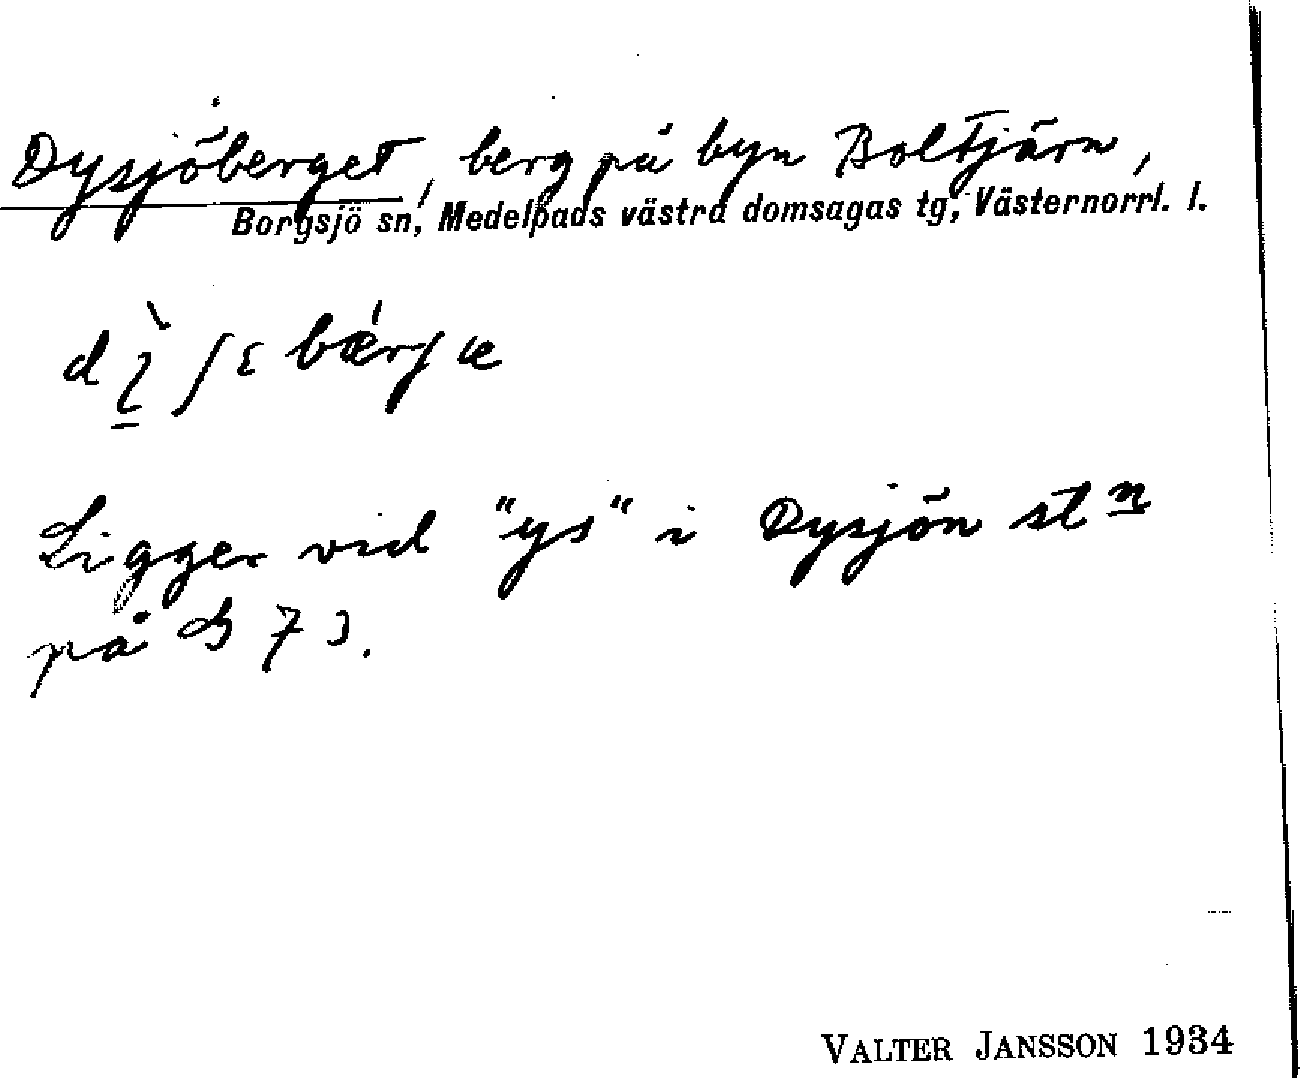 Dysjöberget, berg på byn Boltjärn,
Borgsjö sn, Medelpads västra domsagas tg, Västernorrl. l.
Ligger vid "ys" i Dysjön st n
på
VALTER JANSSON 1934